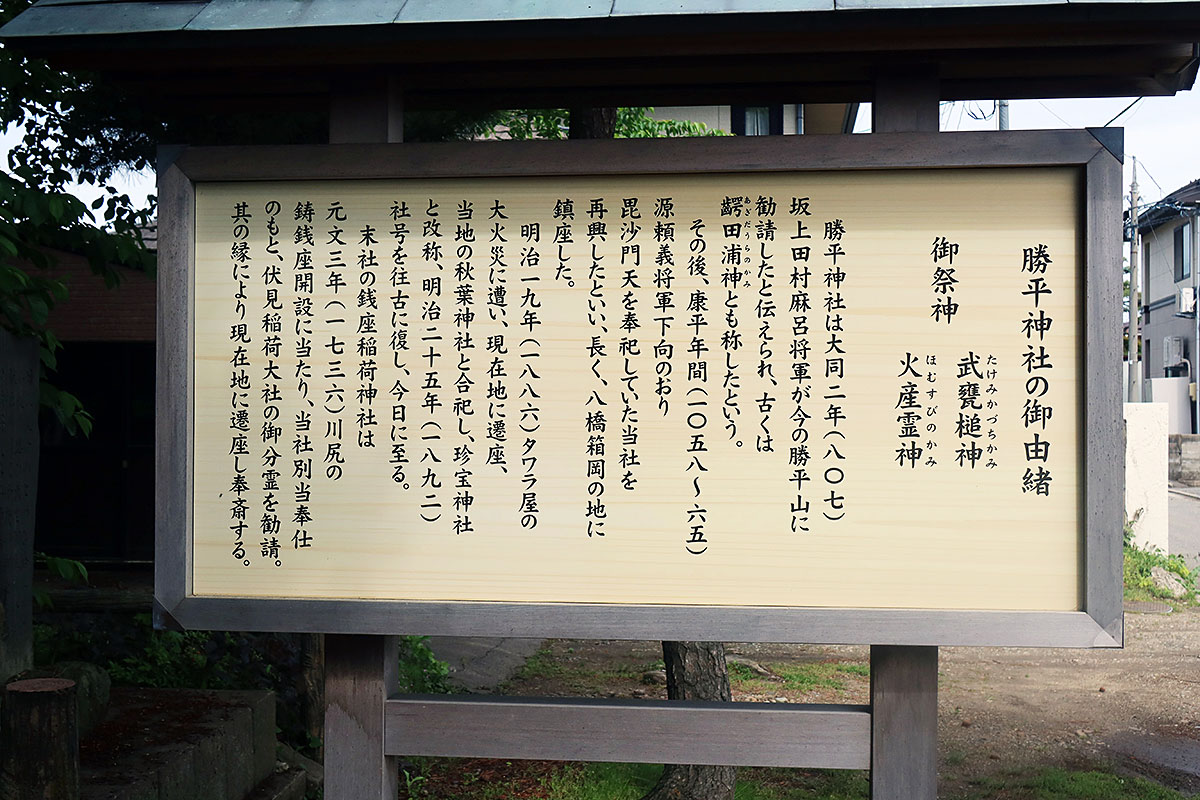 勝平神社の御由緒
御祭神
武甕槌神
たけみかづちかみ
火産霊神
ほむすびのかみ
勝平神社は大同二年（八〇七）
坂上田村麻呂将軍が今の勝平山に
勧請したと伝えられ、古くは
齶田浦神とも称したという。
あぎだうらのかみ
その後、康平年間（一〇五八～六五）
源頼義将軍下向のおり
毘沙門天を奉祀していた当社を
再興したといい、長く、八橋箱岡の地に
鎮座した。
明治一九年（一八八六）タワラ屋の
大火災に遭い、現在地に遷座、
当地の秋葉神社と合祀し、珍宝神社
と改称、明治二十五年（一八九二）
社号を往古に復し、今日に至る。
末社の銭座稲荷神社は
元文三年（一七三六）川尻の
鋳銭座開設に当たり、当社別当奉仕
のもと、伏見稲荷大社の御分霊を勧請。
其の縁により現在地に遷座し奉斎する。